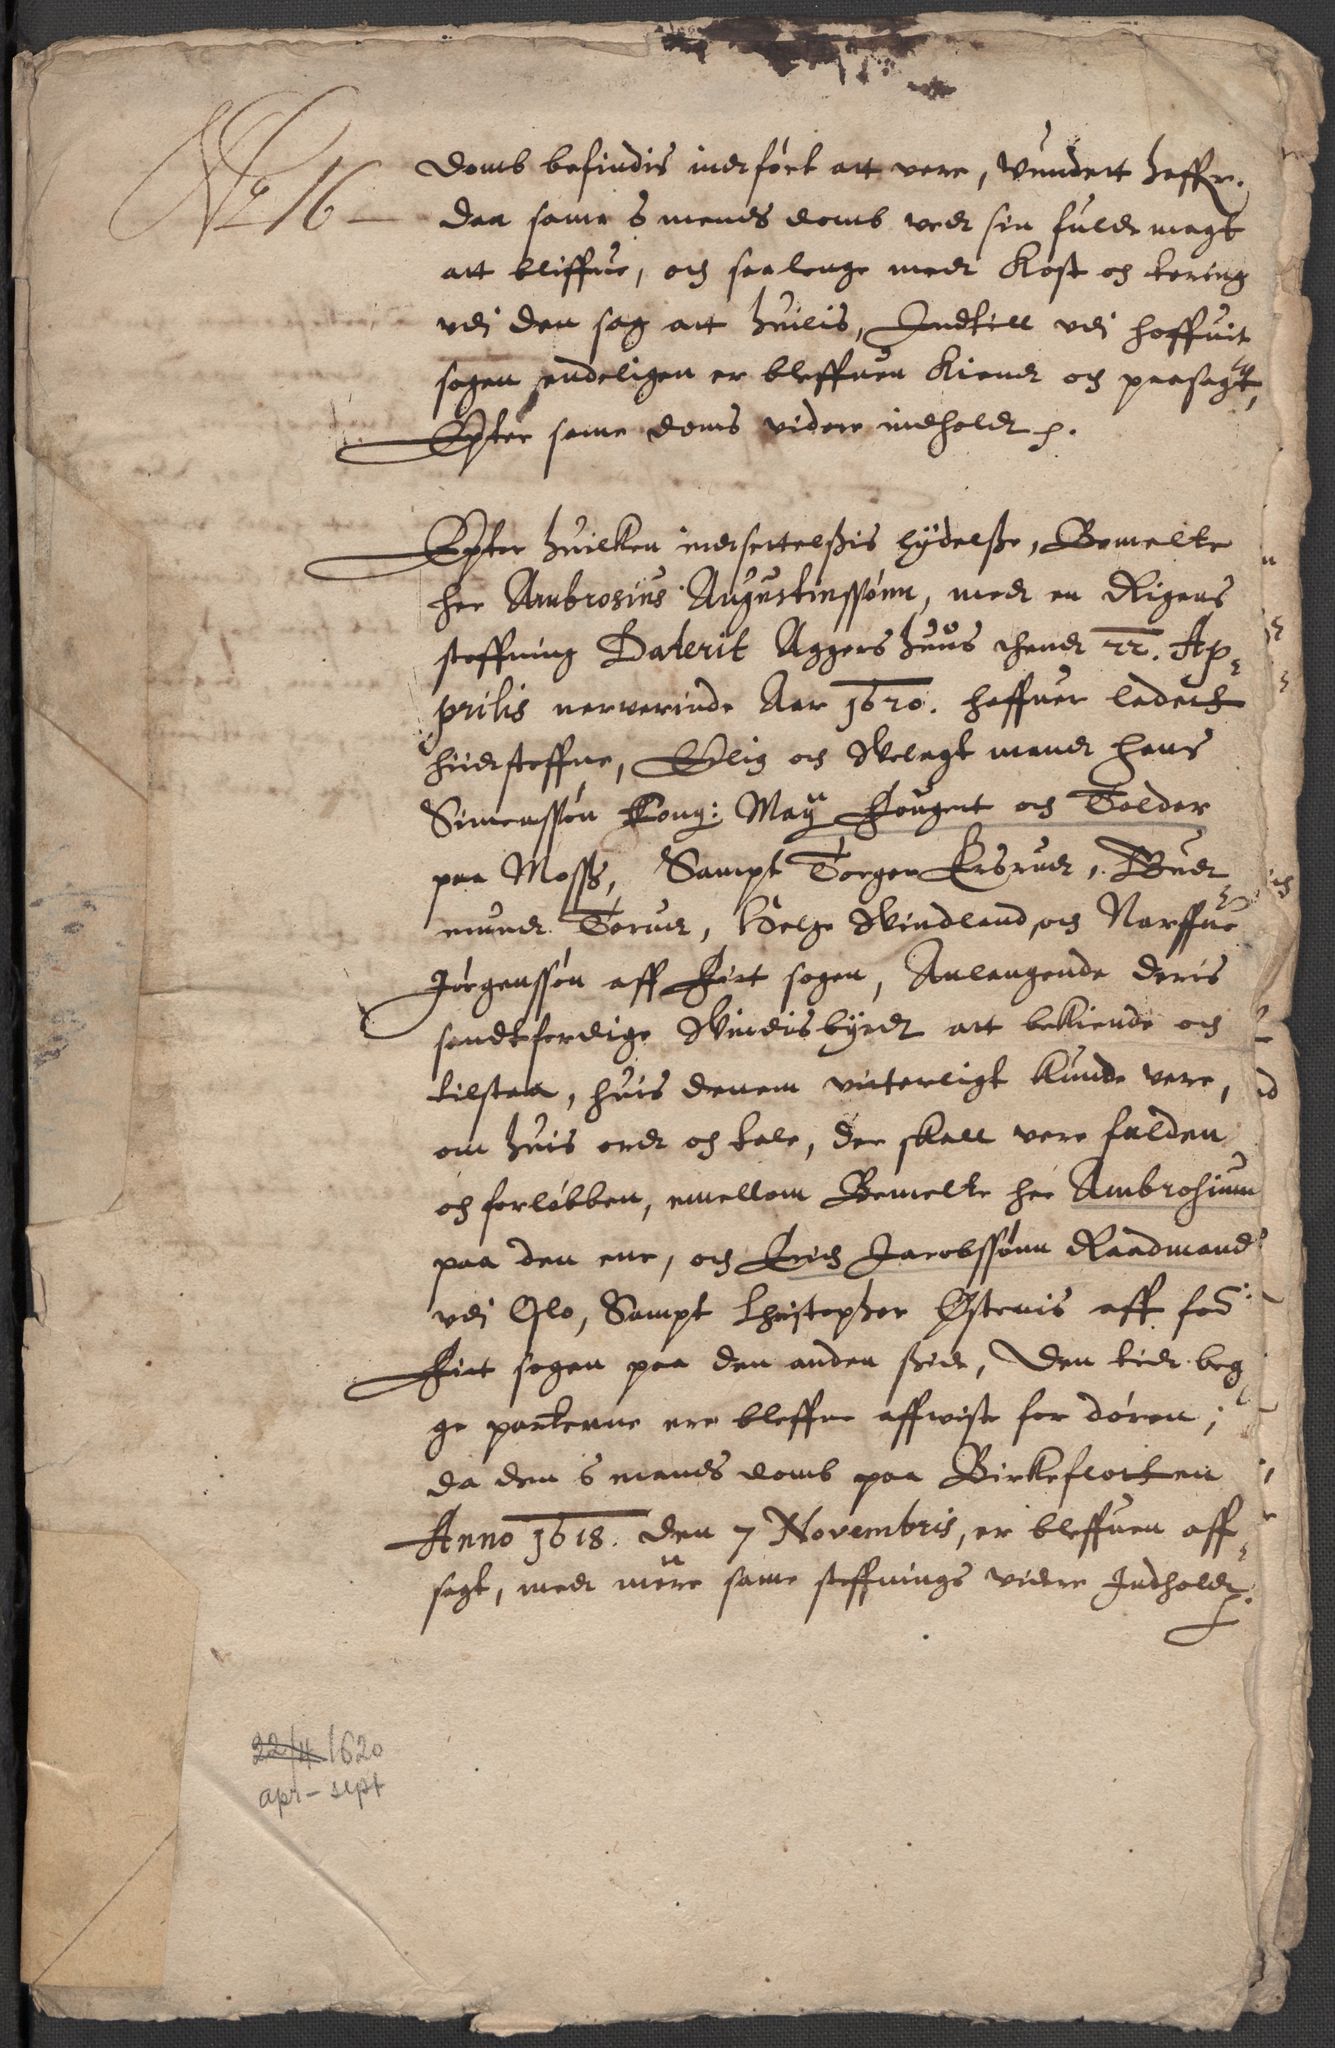 No 16
domb befindis indført att vere, Vundertt haffr.
daa same 6 mends domb ved sin fuld magt
att bliffue, och saalenge med Kost och tering
vdj den sag att huilis, Indtill vdj hoffuit
sagen endeligen er bleffuen Kiend och paasagt,
Epter same doms videre indhold p.
Epter huilken indsettelßis lÿdelße, Bemelte
her Ambrosius Augustinssønn, med en Rigens
steffning Daterit Aggershuus thend 22. Ap-
prilis nerverinde Aar 1620. haffuer ladett
hiidsteffne, Erlig och Velagt mand Hans
Simenssøn Kong: Maÿ Fougent och Tolder
paa Moss, Sampt Torger Krsrud, Gud-
mund Torud, Helge Windland, och Narffue
Jørgenssøn aff Fiet sogen, Anlangende deris
sandtferdige Vindisbyrd att bekiende och
tilstaa, huis dennem vitterligt kunde vere,
om huis ord och tale, der skall vere falden
och forløbben, emellom Bemelte her Ambrosium
paa den ene, och Erich Jacobssønn Raadmand
vdj Oslo, Sampt Christopher Østenis aff for:
Fiet sogen paa den anden side, Den tid beg-
ge parterne ere bleffne affwiste for døren;
da den 6 mands domb paa Birkeflotten
Anno 1618. den 7 Novembris, er bleffuen aff-
sagt, med mere same steffnings videre Indhold p.
22/4 1620
apr - sept